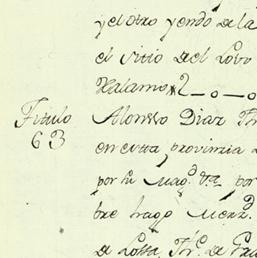 y el otro yendo de la
el sitio del Lobo
Halamo 2 — o — o
Titulo
63
Alonsso Diaz
en esta provincia
por su Mag.d
bre hago Merz.d
de Lossa, Th.e de